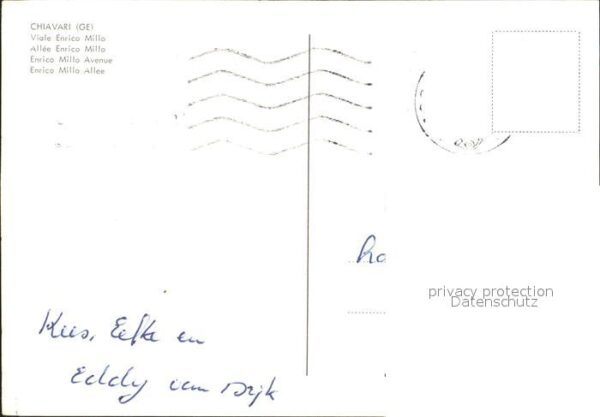 CHIAVARI (GE)
Viale Enrico Millo
Allée Enrico Millo
Enrico Millo Avenue
Enrico Millo Allee
ha
privacy protection
Datenschutz
Kees, Eefke en
Eddy van Dijk